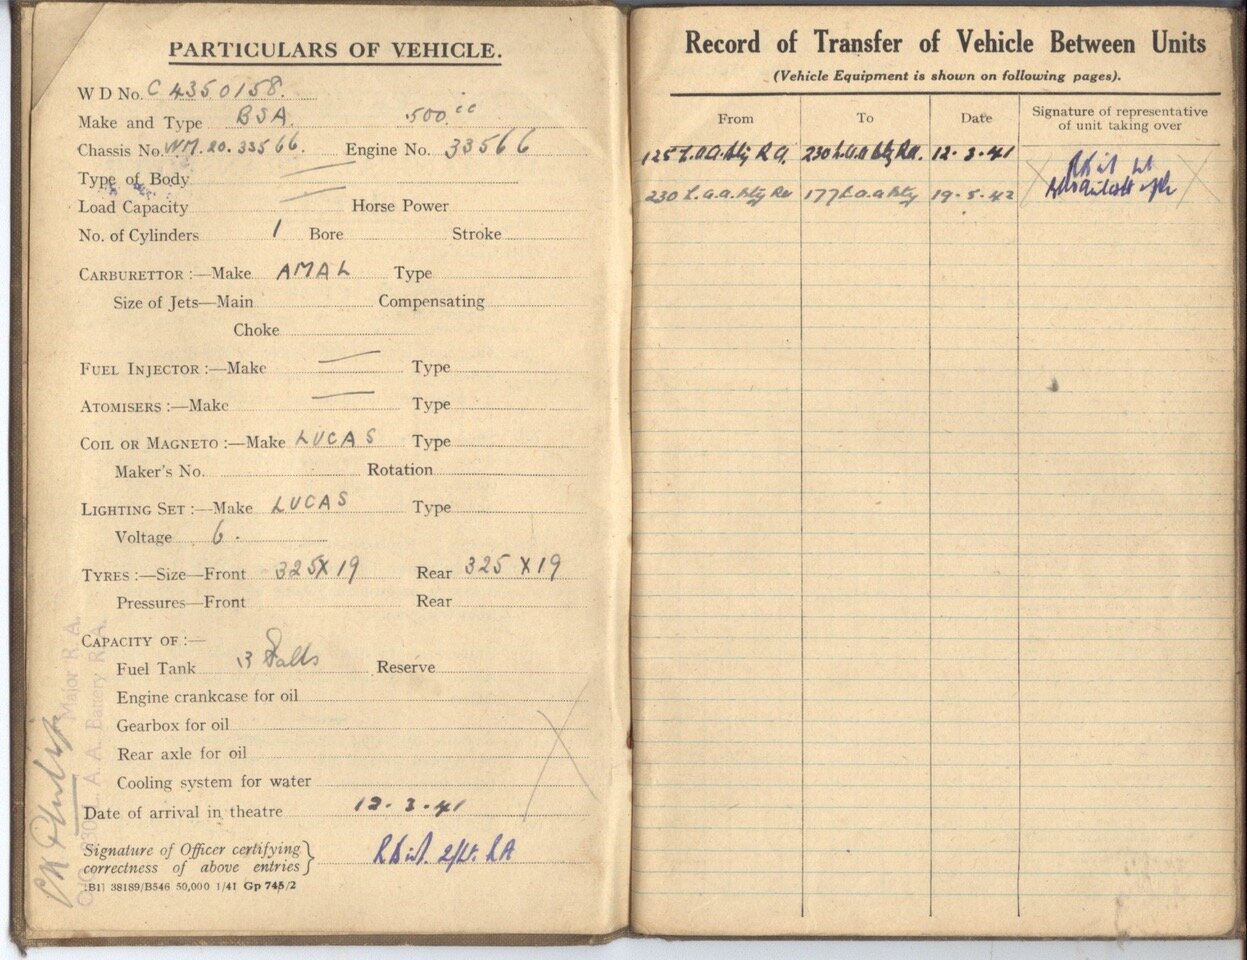 PARTICULARS OF VEHICLE.
W D No. C 4350158.
Make and Type BSA. 500 cc
Chassis No. WM.20.33566. Engine No. 33566
Type of Body
Load Capacity Horse Power
No. of Cylinders 1 Bore Stroke
CARBURETTOR :—Make AMAL Type
Size of Jets—Main Compensating
Choke
FUEL INJECTOR :—Make Type
ATOMISERS :—Make Type
COIL OR MAGNETO :—Make LUCAS Type
Maker's No. Rotation
LIGHTING SET :—Make LUCAS Type
Voltage 6.
TYRES :—Size—Front 325X19 Rear 325 X19
Pressures—Front Rear
CAPACITY OF :—
Fuel Tank 3 Galls Reserve
Engine crankcase for oil
Gearbox for oil
Rear axle for oil
Cooling system for water
Date of arrival in theatre 12.3.41
Signature of Officer certifying
correctness of above entries 2/Lt. RA
(B1) 38189/B546 50,000 1/41 Gp 745/2
Major R. A.
O.C. 230 A. A. Battery R. A.
Record of Transfer of Vehicle Between Units
(Vehicle Equipment is shown on following pages).
From To Date Signature of representative
of unit taking over
125 L.A.A. Bty R A. 230 L.A.A Bty RA. 12.3.41
230 L.a.a. Bty RA 177 L.a.a Bty 19-5-42